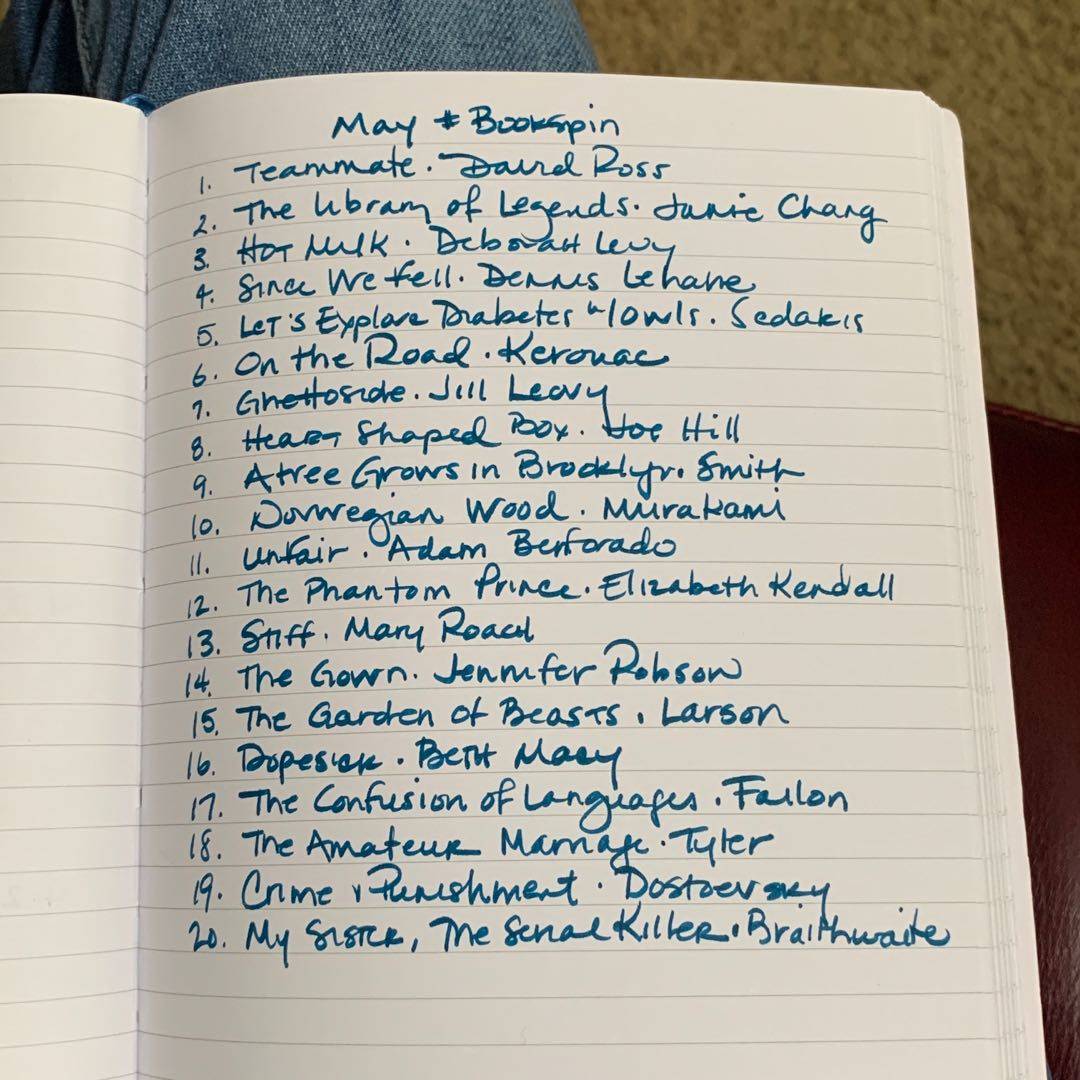 May # Bookspin
1. Teammate. David Ross
2. The Library of Legends. Janie Chang
3. Hot Milk. Deborah Levy
4. Since We Fell. Dennis Lehane
5. Let's Explore Diabetes w/owls. Sedakis
6. On the Road. Kerouac
7. Ghettoside. Jill Leovy
8. Heart Shaped Box. Joe Hill
9. A tree Grows in Brooklyn. Smith
10. Norwegian Wood. Murakami
11. Unfair. Adam Benforado
12. The Phantom Prince. Elizabeth Kendall
13. Stiff. Mary Roach
14. The Gown. Jennifer Robson
15. The Garden of Beasts. Larson
16. Dopesick. Beth Macy
17. The Confusion of Languages. Fallon
18. The Amateur Marriage. Tyler
19. Crime & Punishment. Dostoevsky
20. My Sister, The Serial Killer. Braithwaite